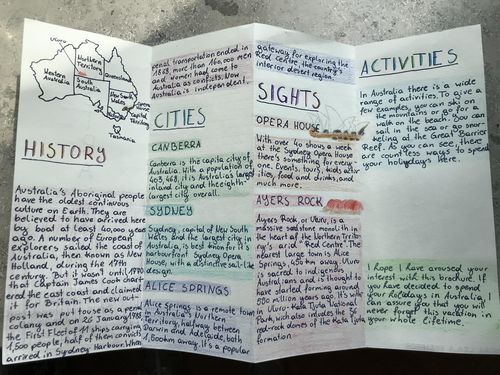 Uluru
Northern
Territory
Western
Australia
Queensland
South
Australia
New South
Wales
Capital
Territory
Tasmania
HISTORY
Australia's Aboriginal people
have the oldest continuous
culture on Earth. They are
believed to have arrived here
by boat at least 60,000 years
ago. A number of European
explorers sailed the coast of
Australia, then known as New
Holland, during the 17th
century. But it wasn't until 1770
that Captain James Cook chart-
ered the east coast and claimed
it for Britain. The new out-
post was put to use as a penal
colony and on 26 January 1788,
the First Fleet of 11 ships carrying
1,500 people, half of them convicts
arrived in Sydney Harbour. When
penal transportation ended in
1868, more than 160,000 men
and women had come to
Australia as convicts. Now
Australia is independent.
CITIES
CANBERRA
Canberra is the capital city of
Australia. With a population of
403,468, it is Australia's largest
inland city and the eighth-
largest city overall.
SYDNEY
Sydney, capital of New South
Wales and the largest city in
Australia, is best known for its
harbourfront Sydney Opera
House, with a distinctive sail-like
design.
ALICE SPRINGS
Alice Springs is a remote town
in Australia's Northern
Territory, halfway between
Darwin and Adelaide, both
1,500km away. It's a popular
gateway for exploring the
Red centre, the country's
interior desert region.
SIGHTS
OPERA HOUSE
With over 40 shows a week
at the Sydney Opera House
there's something for every-
one. Events, tours, kids activi-
ties, food and drinks, and
much more.
AYERS ROCK
Ayers Rock, or Uluru, is a
massive sandstone monolith in
the heart of the Northern Territo-
ry's arid "Red Centre". The
nearest large town is Alice
Springs, 450 km away. Uluru
is sacred to indigenous
Australians and is thought to
have started forming around
500 million years ago. It's within
the Uluru-Kata Tjuta National
Park, which also includes the 36
red-rock domes of the Kata Tjuta
formation.
ACTIVITIES
In Australia there is a wide
range of activities. To give a
few examples, you can ski on
the mountains or go for a
walk on the beach. You can
sail in the sea or go snor-
keling at the Great Barrier
Reef. As you can see, there
are countless ways to spend
your holydays here.
I hope I have aroused your
interest with this brochure. If
you have decided to spend
your holidays in Australia, I
can assure you that you will
never forget this vacation in
your whole lifetime.